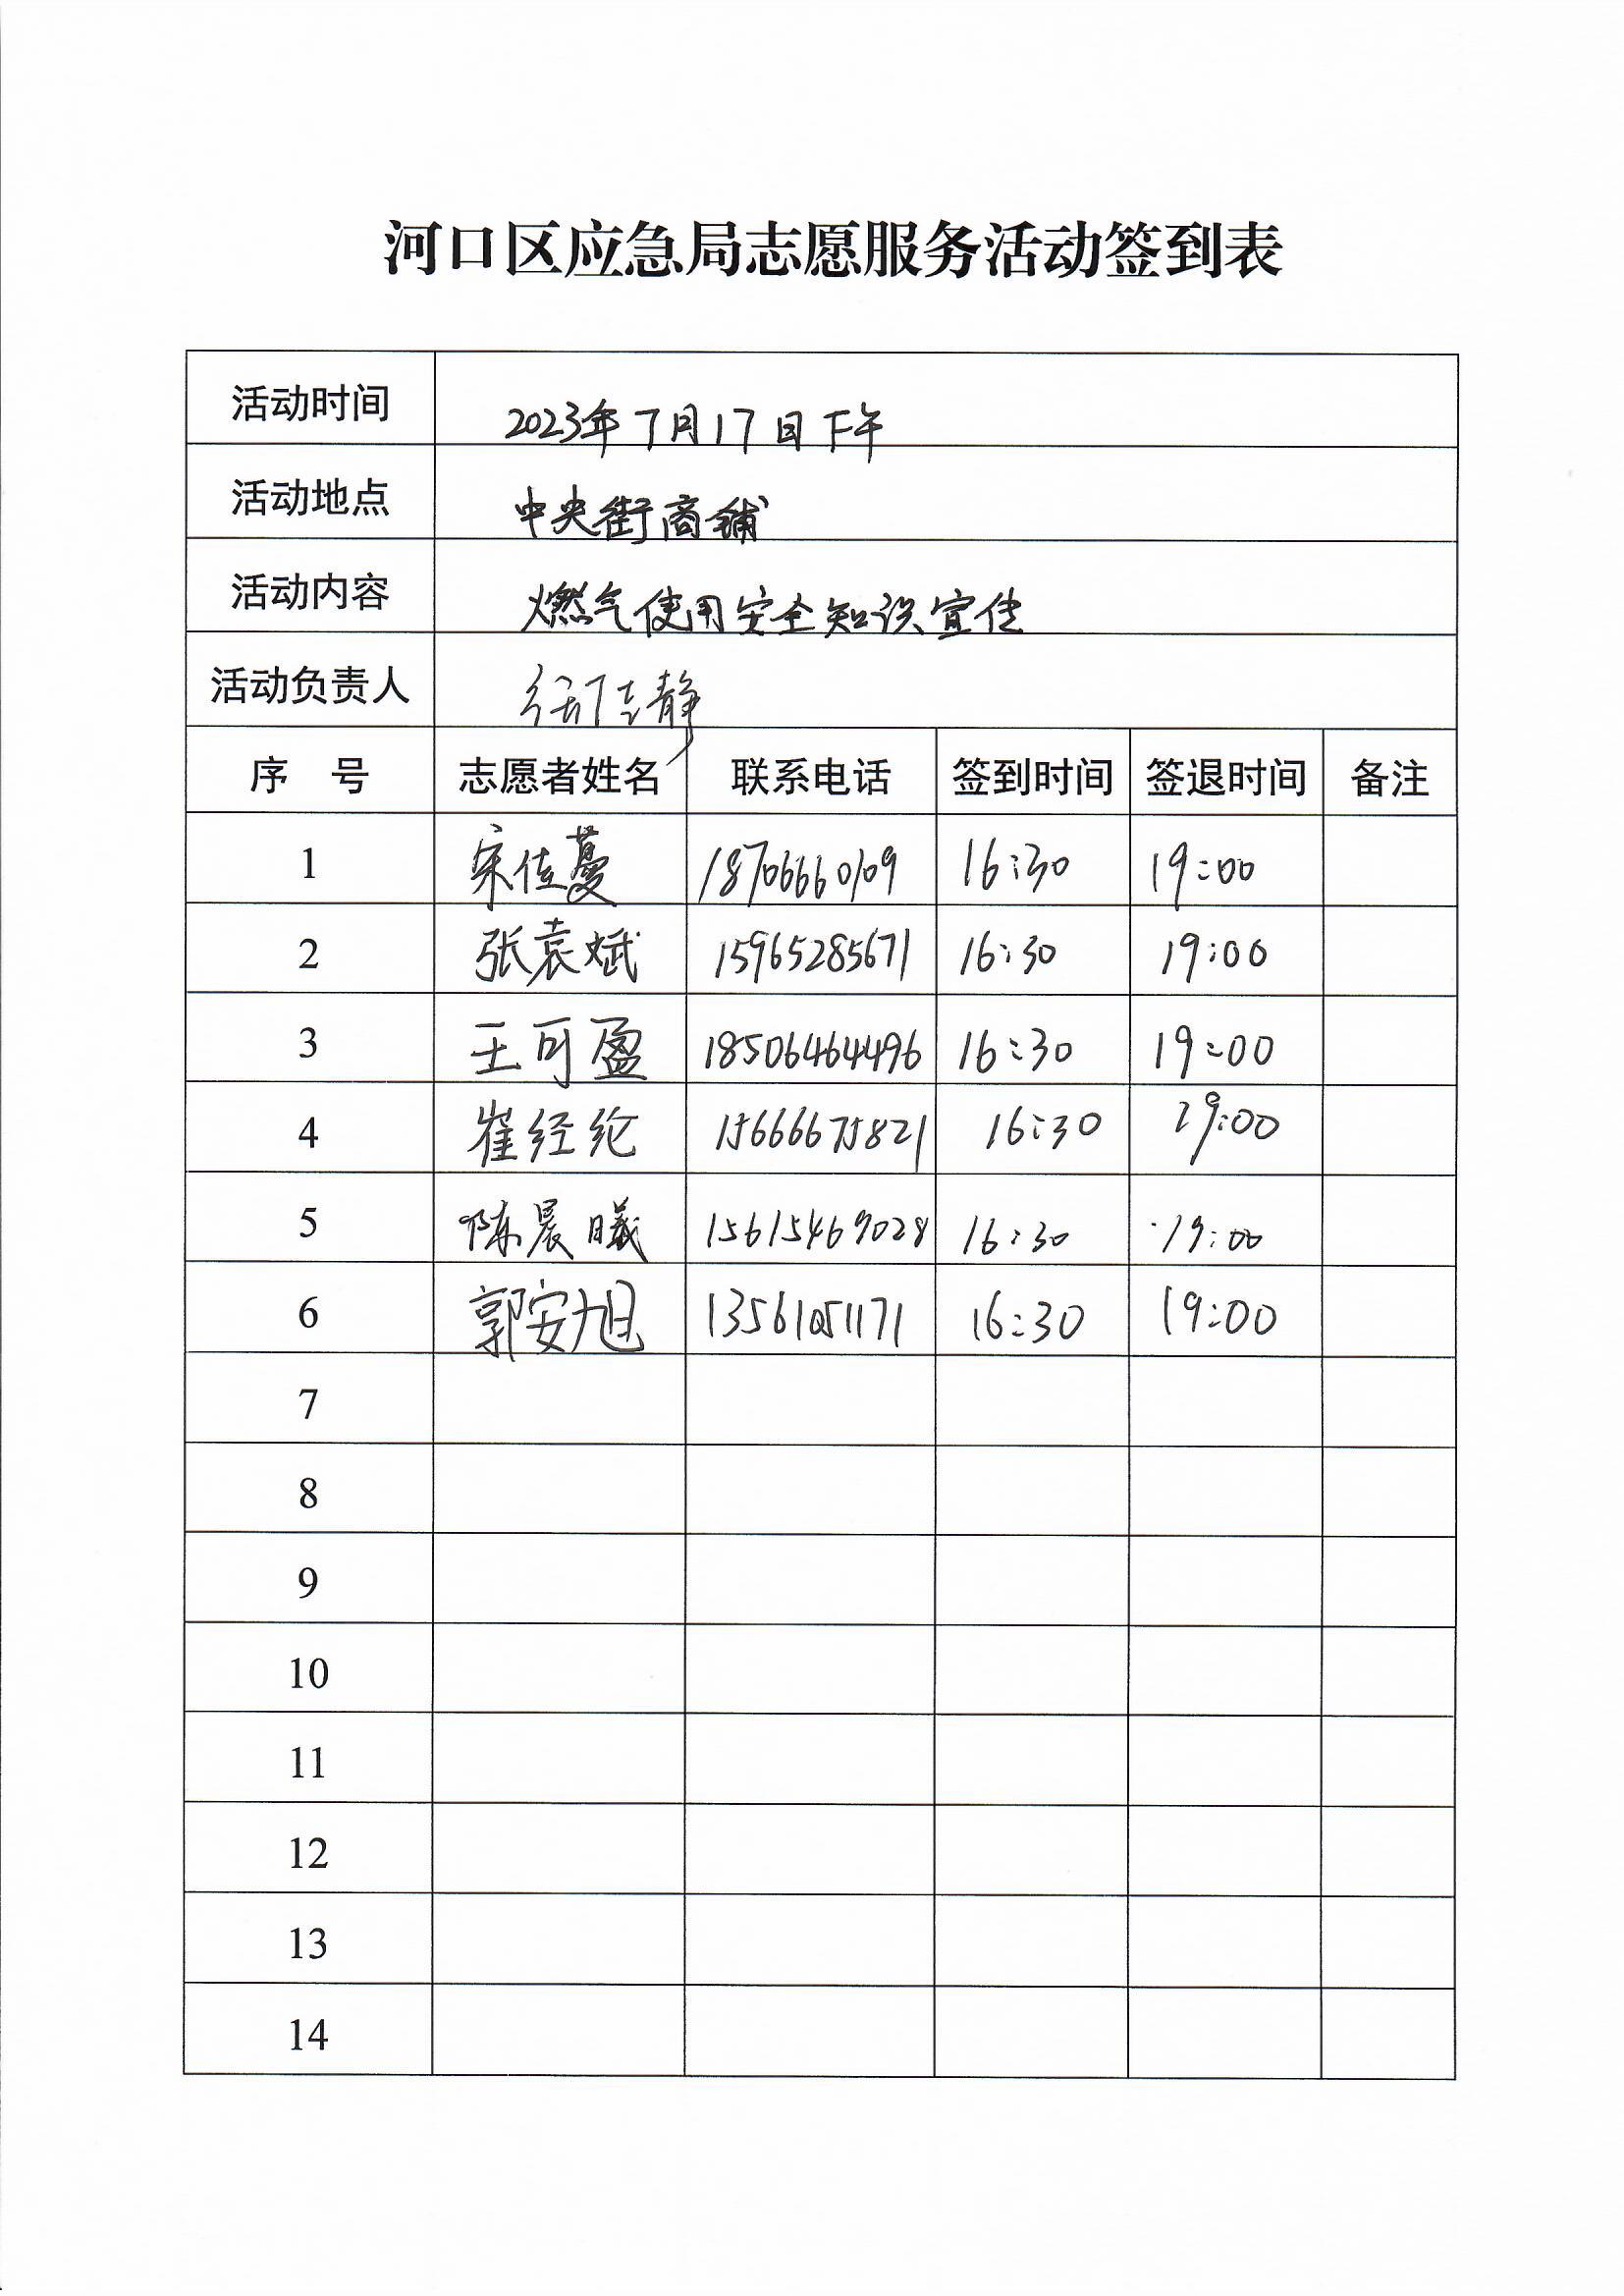 河口区应急局志愿服务活动签到表
活动时间 2023年7月17日下午
活动地点 中央街商铺
活动内容 燃气使用安全知识宣传
活动负责人
序 号 志愿者姓名 联系电话 签到时间 签退时间 备注
1 宋佳蔓 18706660109 16:30 19:00
2 张袁斌 15965285671 16:30 19:00
3 王可盈 18506464496 16:30 19:00
4 崔经纶 15666675821 16:30 19:00
5 陈晨曦 15615469028 16:30 19:00
6 郭安旭 13561051171 16:30 19:00
7
8
9
10
11
12
13
14